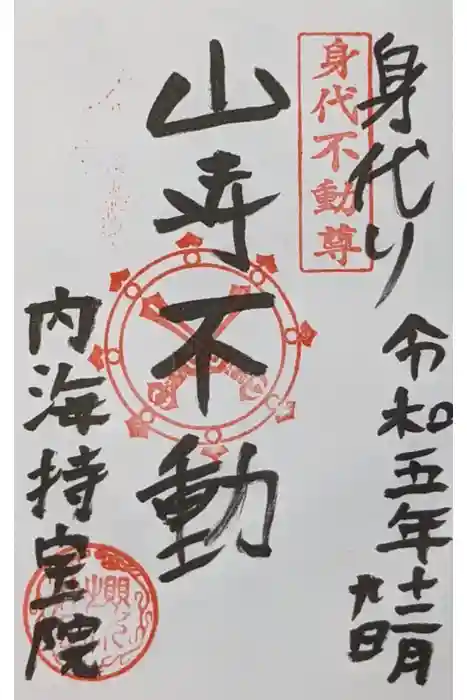 身代り
身代不動尊
令和五年十二月
九日
山寺不動
内海持宝院